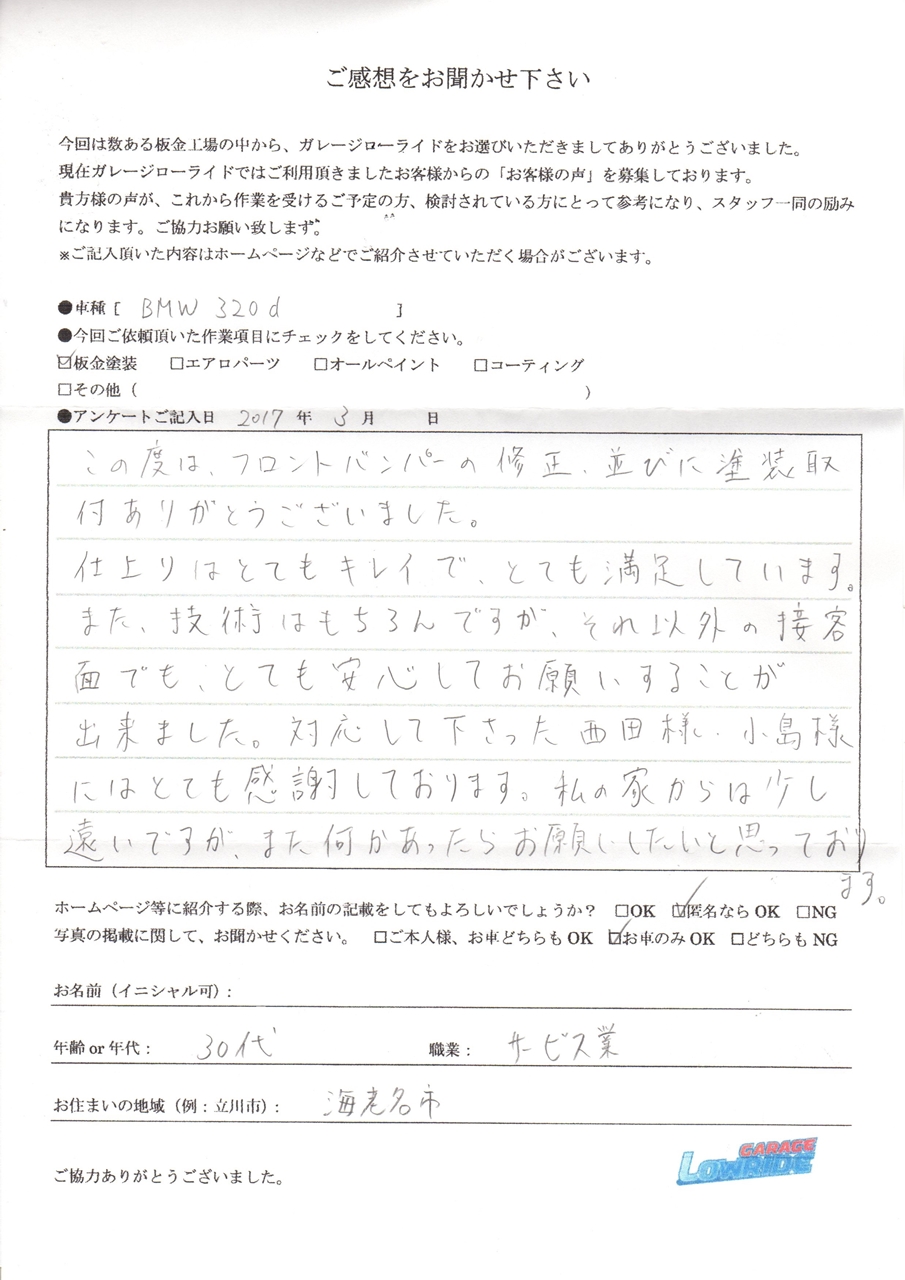 ご感想をお聞かせ下さい
今回は数ある板金工場の中から、ガレージローライドをお選びいただきましてありがとうございました。
現在ガレージローライドではご利用頂きましたお客様からの「お客様の声」を募集しております。
貴方様の声が、これから作業を受けるご予定の方、検討されている方にとって参考になり、スタッフ一同の励み
になります。ご協力お願い致します。
※ご記入頂いた内容はホームページなどでご紹介させていただく場合がございます。
●車種 [ BMW 320d ]
●今回ご依頼頂いた作業項目にチェックをしてください。
☑板金塗装 □エアロパーツ □オールペイント □コーティング
□その他 ( )
●アンケートご記入日 2017 年 3 月 日
この度は、フロントバンパーの修正、並びに塗装取
付ありがとうございました。
仕上りはとてもキレイで、とても満足しています。
また、技術はもちろんですが、それ以外の接客
面でも、とても安心してお願いすることが
出来ました。対応して下さった西田様、小島様
にはとても感謝しております。私の家からは少し
遠いですが、また何かあったらお願いしたいと思っており
ます。
ホームページ等に紹介する際、お名前の記載をしてもよろしいでしょうか? □OK ☑匿名なら OK □NG
写真の掲載に関して、お聞かせください。 □ご本人様、お車どちらも OK ☑お車のみ OK □どちらも NG
お名前(イニシャル可):
年齢 or 年代: 30代 職業: サービス業
お住まいの地域(例:立川市): 海老名市
ご協力ありがとうございました。
GARAGE
LOWRIDE